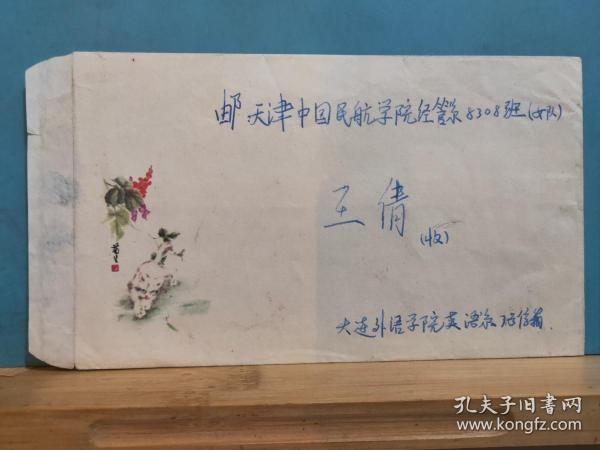 邮 天津中国民航学院经管系8308班(女队)
王倩
(收)
大连外语学院英语系
孔夫子旧书网
www.kongfz.com